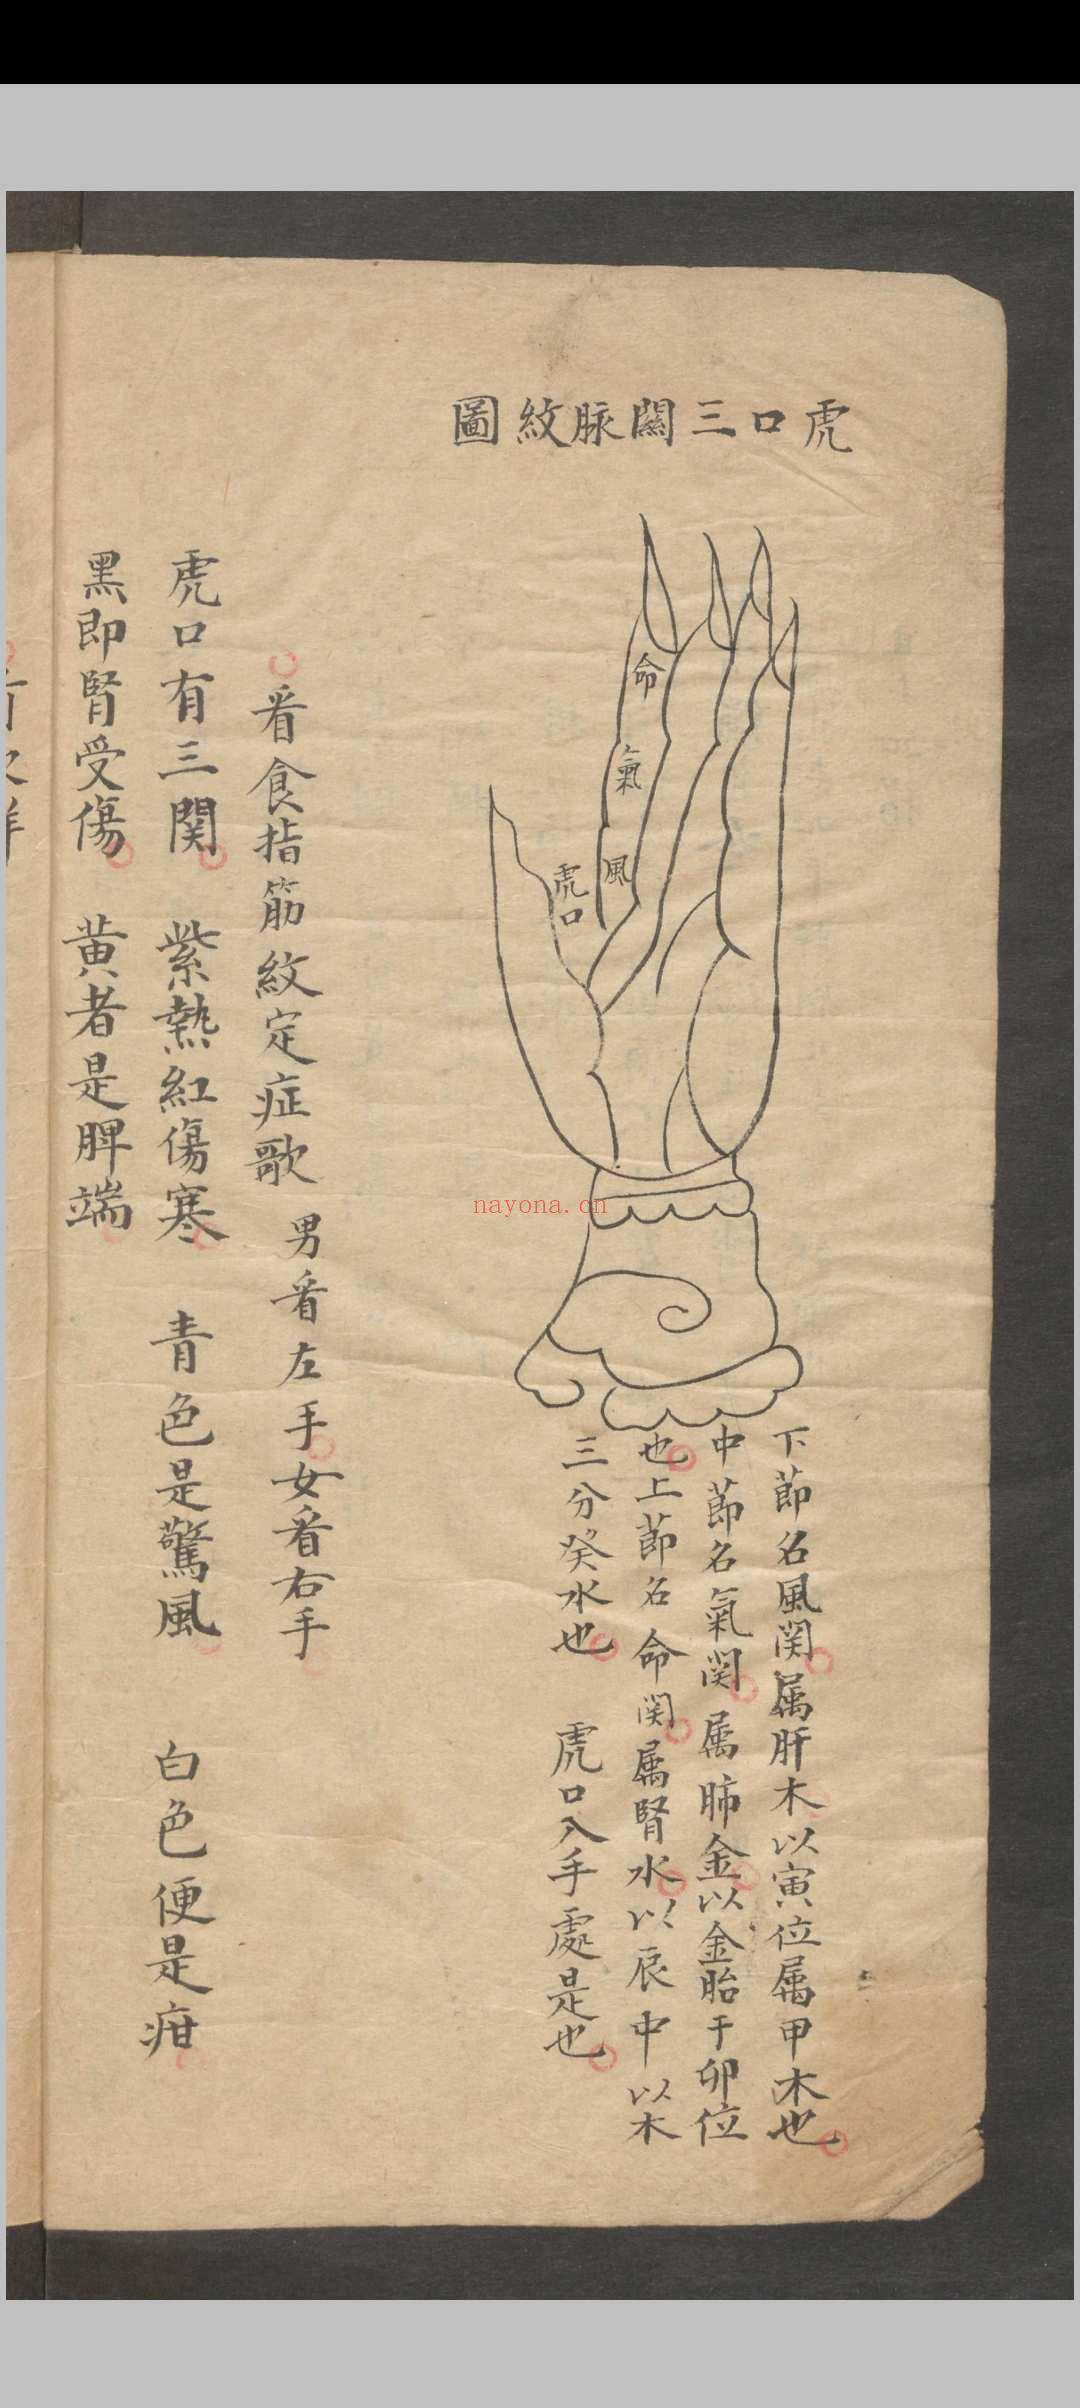 虎口三關脉紋圖
命
氣
風
虎口
下節名風関属肝木以寅位属甲木也
中節名氣関属肺金以金胎于卯位
也上節名命関属腎水以辰中以木
三分癸水也 虎口入手處是也
看食指筋紋定症歌 男看左手女看右手
虎口有三関 紫熱紅傷寒 青色是驚風 白色便是疳
黑即腎受傷 黄者是脾端
nayona.cn